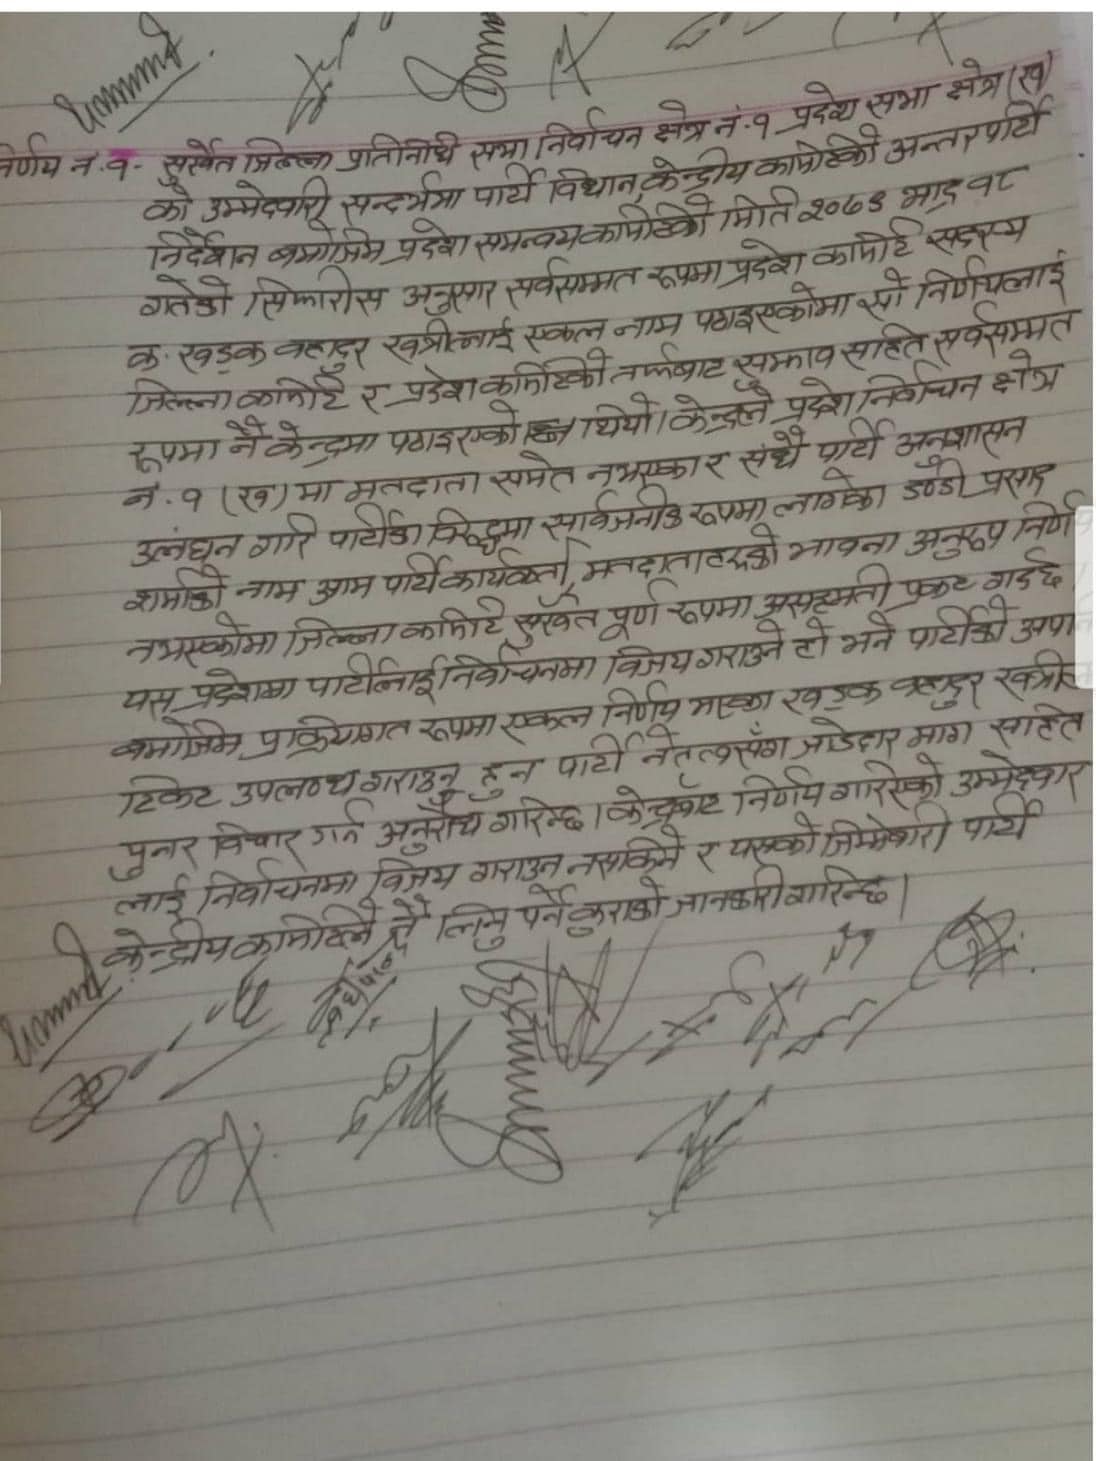 निर्णय नं.१- सुर्खेत जिल्ला प्रतिनिधि सभा निर्वाचन क्षेत्र नं.१ प्रदेश सभा क्षेत्र (ख)
को उम्मेदवारी सन्दर्भमा पार्टी विधान, केन्द्रीय कमिटिको अन्तर पार्टी
निर्देशन बमोजिम प्रदेश समन्वय कमिटिको मिति २०७४ भाद्र १८
गतेको सिफारीस अनुसार सर्वसम्मत रूपमा प्रदेश कमिटि सदस्य
क. खड्क बहादुर खत्रीलाई एकल नाम पठाइएकोमा सो निर्णयलाई
जिल्ला कमिटि र प्रदेश कमिटिको तर्फबाट सुझाव सहित सर्वसम्मत
रूपमा नै केन्द्रमा पठाइएको थियो। केन्द्रले प्रदेश निर्वाचन क्षेत्र
नं. १ (ख) मा मतदाता समेत नभएका र संधै पार्टी अनुशासन
उलंघन गरि पार्टीका बिरुद्धमा सार्वजनीक रूपमा लागेका डण्डी प्रसाद
शर्माको नाम आम पार्टी कार्यकर्ता, मतदाताहरुको भावना अनुरुप निर्णय
नभएकोमा जिल्ला कमिटि सुर्खेत पूर्ण रूपमा असहमती प्रकट गर्दछ।
यस प्रदेशमा पार्टीलाई निर्वाचनमा विजय गराउने हो भने पार्टीको
बमोजिम प्रक्रियागत रूपमा एकल निर्णय भएका खड्क बहादुर
टिकट उपलब्ध गराउनु हुन पार्टी नेतृत्वसँग जोडदार माग सहित
पुनर विचार गर्न अनुरोध गरिन्छ। केन्द्रबाट निर्णय गरिएको उम्मेदवार
लाई निर्वाचनमा विजय गराउन नसकिने र यसको जिम्मेवारी पार्टी
केन्द्रीय कमिटिले नै लिनु पर्ने कुराको जानकारी गरिन्छ।